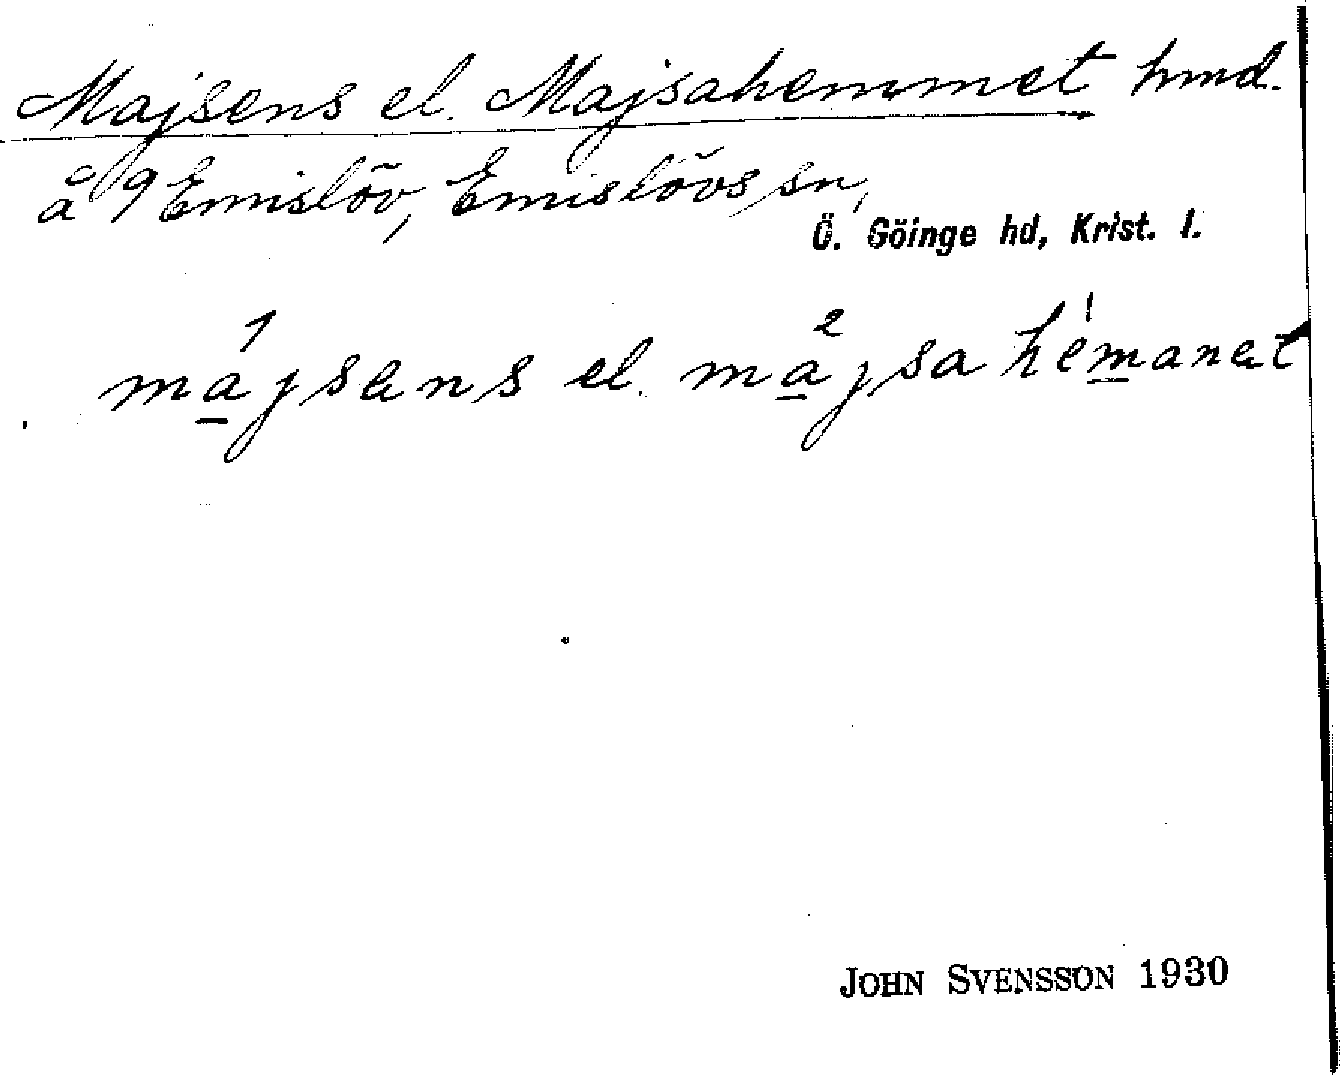 Majsens el. Majsahemmet hmd.
å 9 Emislöv, Emislövs sn,
Ö. Göinge hd, Krist. l.
1 2 1
majsens el. majsa hemanet
JOHN SVENSSON 1930